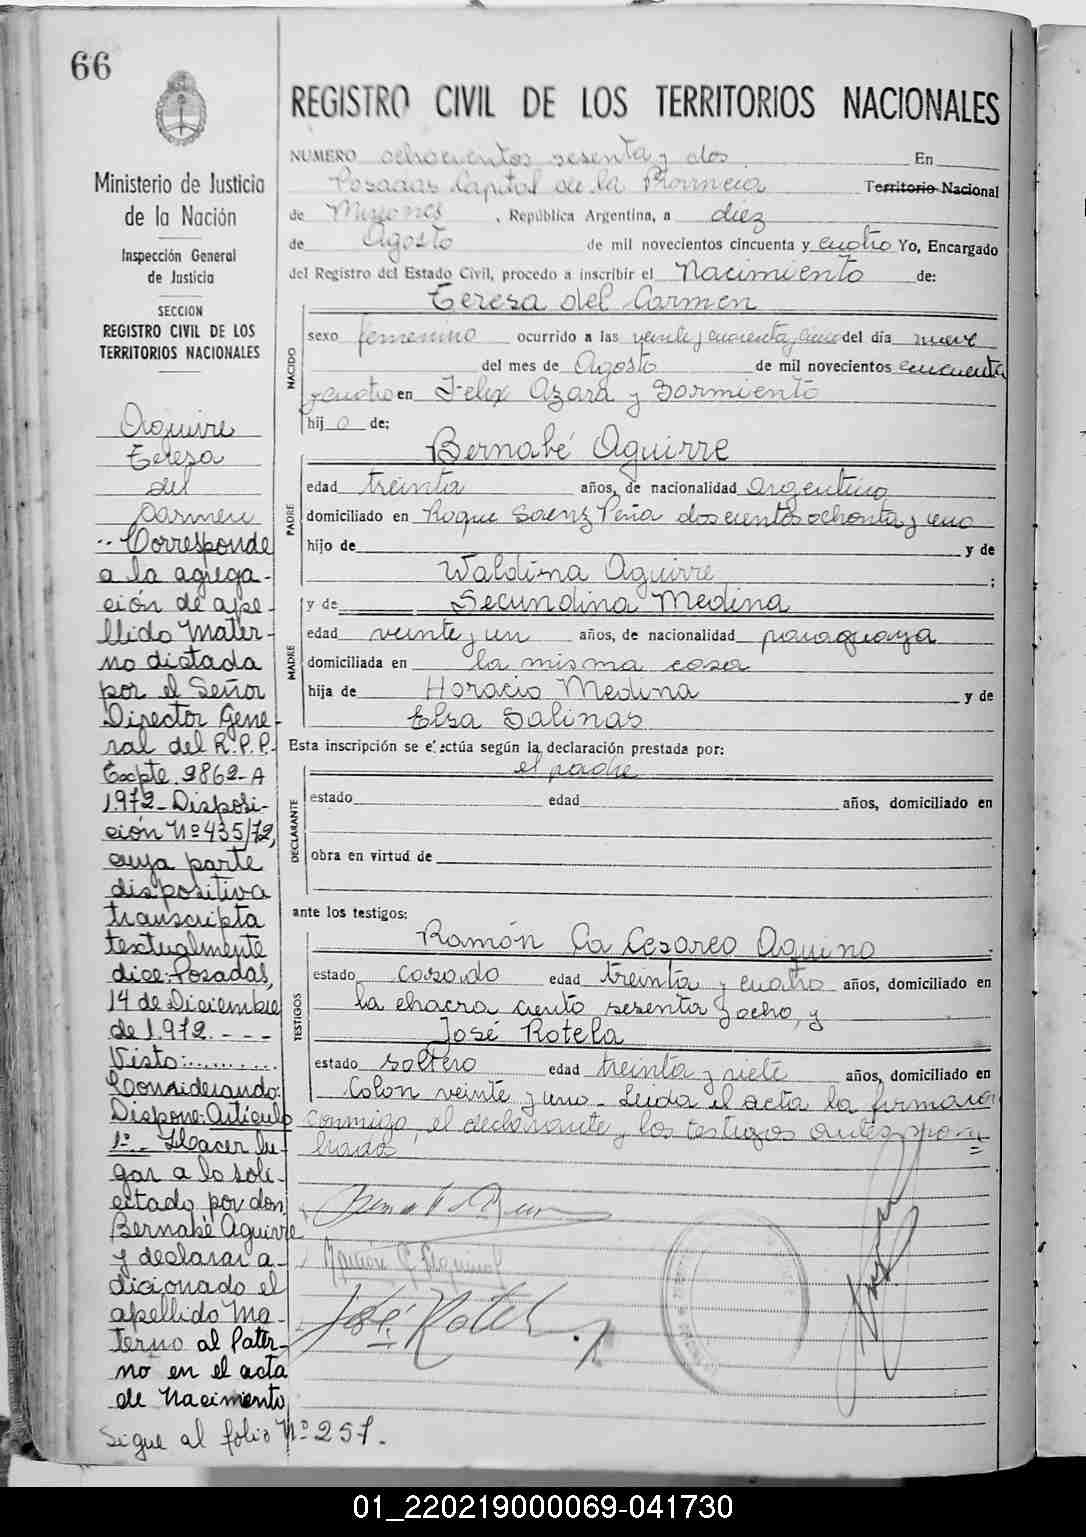 66
Ministerio de Justicia
de la Nación
Inspección General
de Justicia
SECCION
REGISTRO CIVIL DE LOS
TERRITORIOS NACIONALES
Aguirre
Teresa
del
Carmen
.. Corresponde
a la agrega-
ción de ape-
llido Mater-
no dictada
por el Señor
Director Gene-
ral del R.P.P.
Expte 2862-A
1972-Disposi-
ción Nº 435/72,
cuya parte
dispositiva
transcripta
textualmente
dice: Posadas,
14 de Diciembre
de 1972.---
Visto:..........
Considerando:
Dispone: Artículo
1º-- Hacer lu-
gar a lo soli-
citado por don
Bernabé Aguirre
y declarar a-
dicionado el
apellido Ma-
terno al Pater-
no en el acta
de Nacimiento
Sigue al folio Nº 257.
REGISTRO CIVIL DE LOS TERRITORIOS NACIONALES
NUMERO ochocientos sesenta y dos En
Posadas Capital de la Provincia Territorio Nacional
de Misiones, República Argentina, a diez
de Agosto de mil novecientos cincuenta y cuatro Yo, Encargado
del Registro del Estado Civil, procedo a inscribir el Nacimiento de:
NACIDO
Teresa del Carmen
sexo femenino ocurrido a las veinte y cuarenta y cinco del día nueve
del mes de Agosto de mil novecientos cincuenta
y cuatro en Felix Azara y Sarmiento
hij a de:
PADRE
Bernabé Aguirre
edad treinta años, de nacionalidad Argentino
domiciliado en Roque Saenz Peña doscientos ochenta y uno
hijo de y de
Waldina Aguirre ;
MADRE
y de Secundina Medina
edad veinte y un años, de nacionalidad paraguaya
domiciliada en la misma casa
hija de Horacio Medina y de
Elsa Salinas
Esta inscripción se efectúa según la declaración prestada por:
DECLARANTE
el padre
estado edad años, domiciliado en
obra en virtud de
ante los testigos:
TESTIGOS
Ramón Ca Cesareo Aquino
estado casado edad treinta y cuatro años, domiciliado en
la chacra ciento sesenta y ocho, y
José Rotela
estado soltero edad treinta y siete años, domiciliado en
Colon veinte y uno - Leida el acta la firmaron
conmigo, el declarante y los testigos antes nom
brados
Ramón C Aquino
José Rotela
01_220219000069-041730